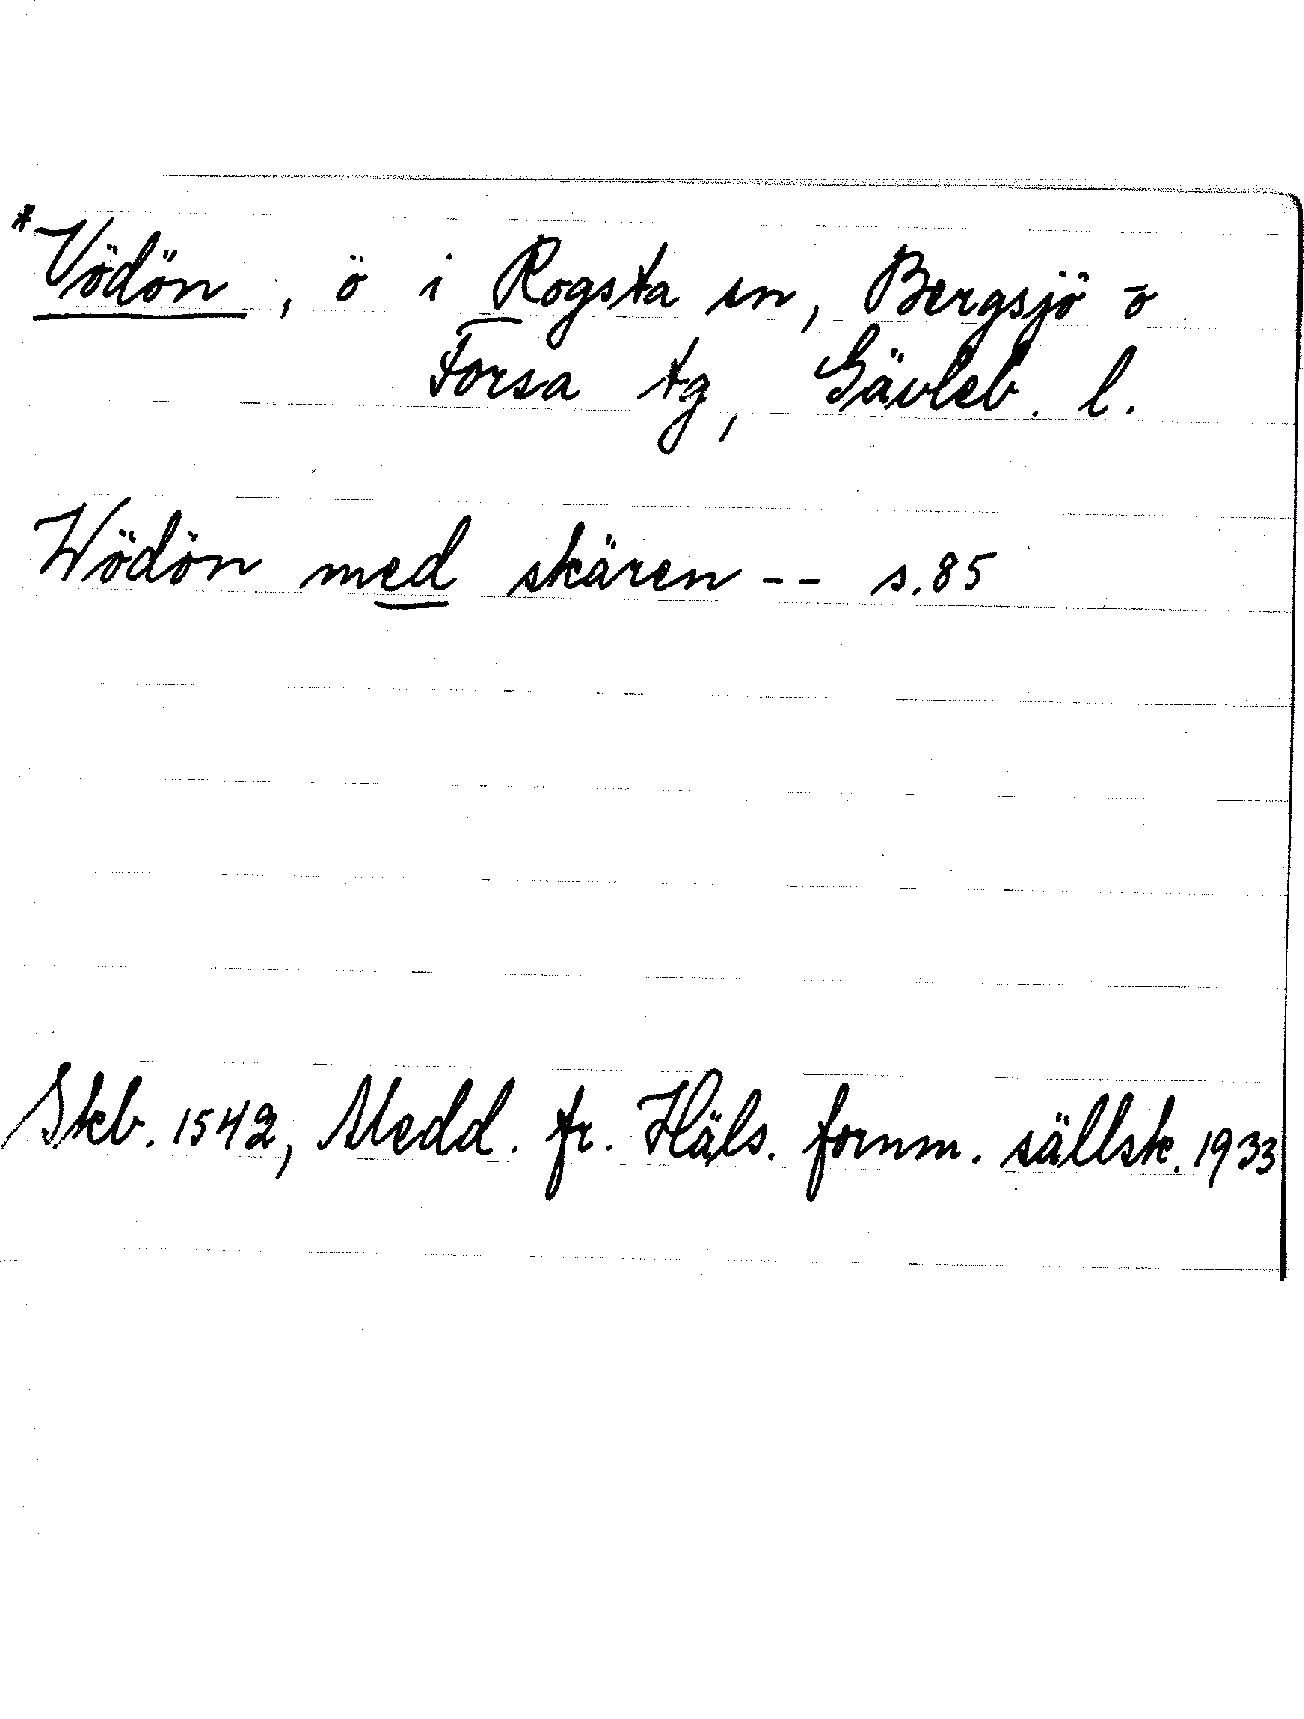 *Vödön, ö i Rogsta sn, Bergsjö o
Forsa tg, Gävleb. l.
Wödön med skären -- s. 85
Skb. 1542, Medd. fr. Häls. fornm. sällsk. 1933